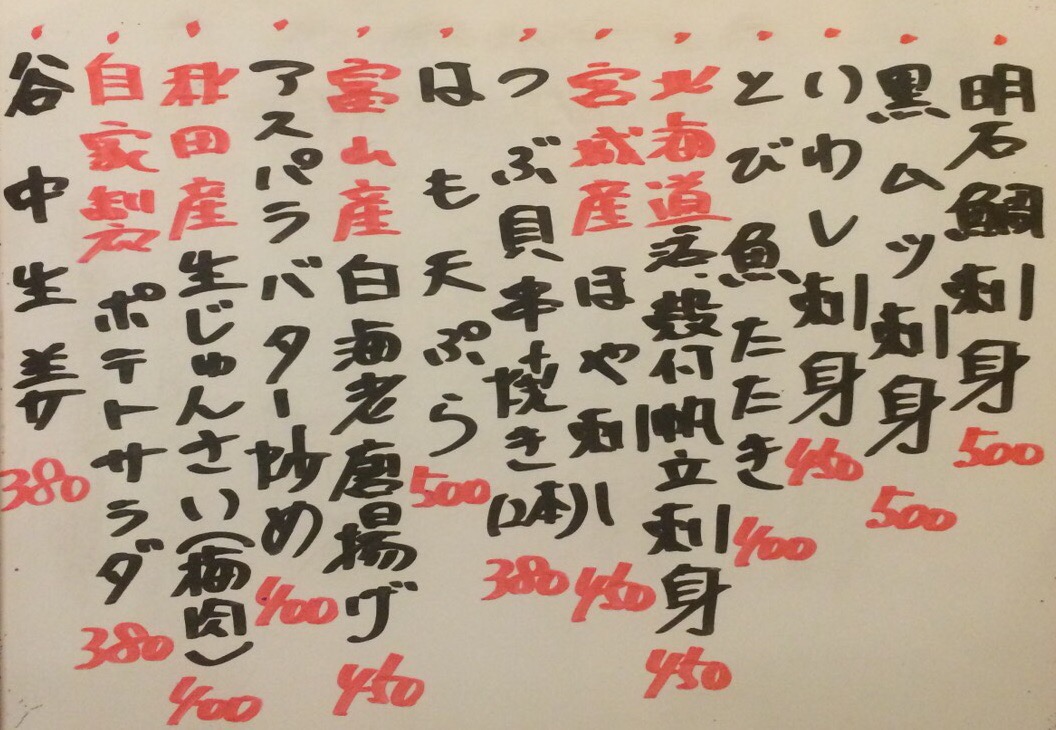 ・明石鯛刺身 500
・黒ムツ刺身 500
・いわし刺身 450
・とび魚たたき 400
・北海道活殻付帆立刺身 450
・宮城産ほや刺し 450
・つぶ貝串焼き(2本) 380
・はも天ぷら 500
・富山産白海老唐揚げ 450
・アスパラバター炒め 400
・秋田産生じゅんさい(梅肉) 400
・自家製ポテトサラダ 380
・谷中生姜 380